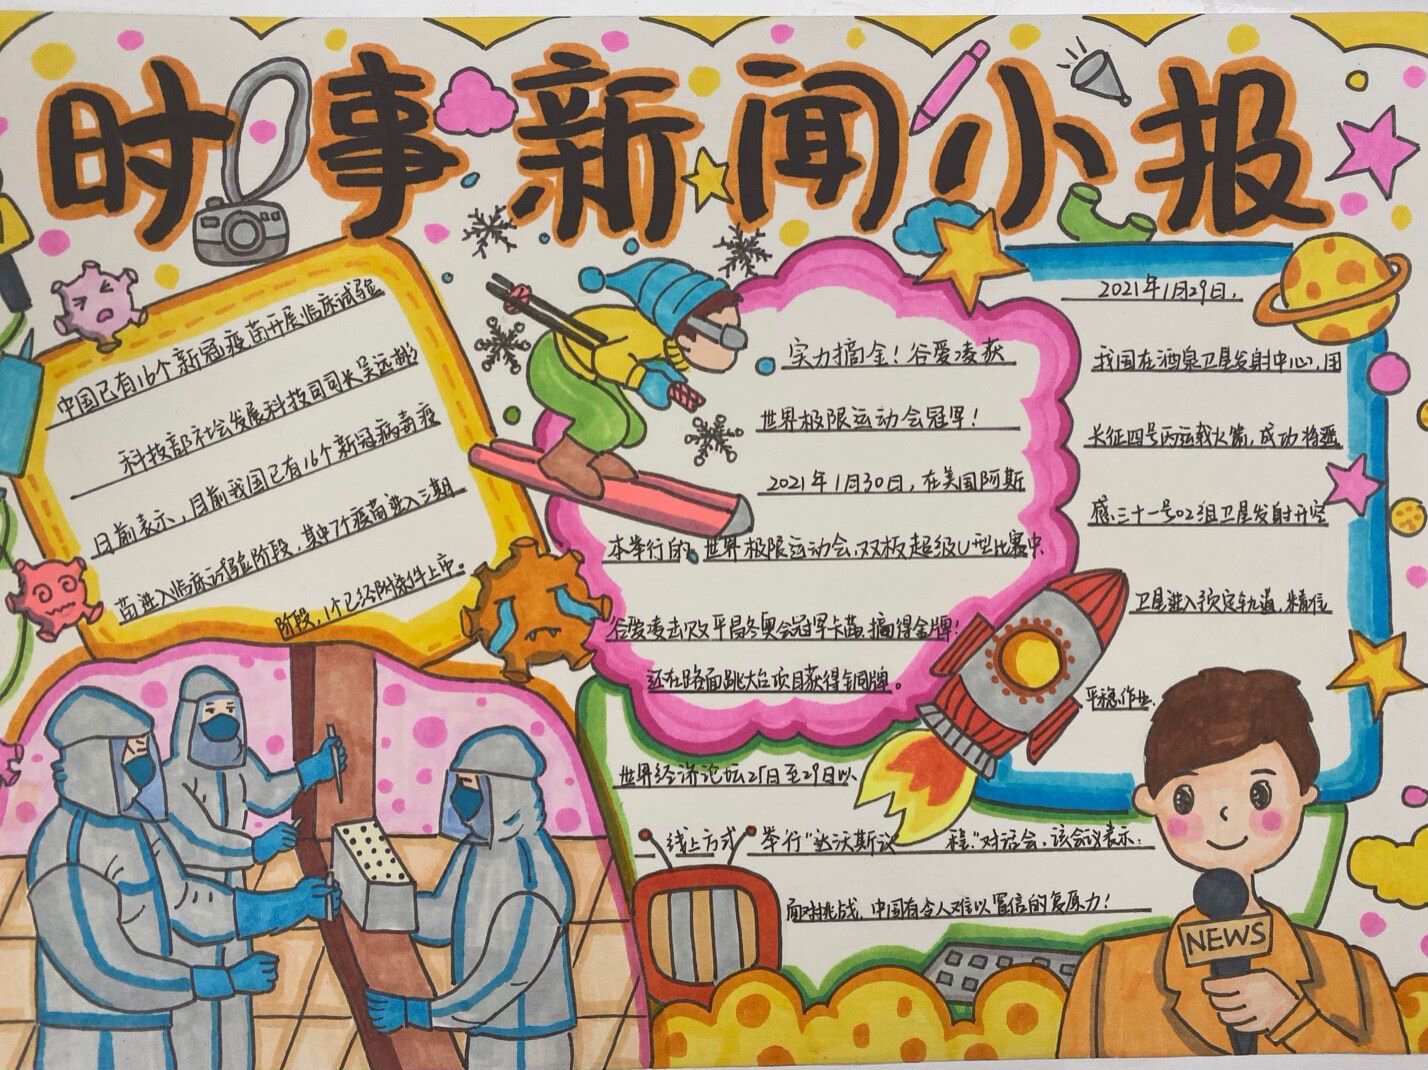 时事新闻小报
中国已有16个新冠疫苗开展临床试验
科技部社会发展科技司司长吴远彬
日前表示，目前我国已有16个新冠病毒疫
苗进入临床试验阶段，其中7个疫苗进入三期
阶段，1个已经附条件上市。
实力摘金！谷爱凌获
世界极限运动会冠军！
2021年1月30日，在美国阿斯
本举行的世界极限运动会，双板超级U型比赛中，
谷爱凌击败平昌冬奥会冠军卡茜，摘得金牌！
还在路面跳大台项目获得铜牌。
2021年1月29日，
我国在酒泉卫星发射中心，用
长征四号丙运载火箭，成功将遥
感三十一号02组卫星发射升空
卫星进入预定轨道，
平稳作业.
世界经济论坛25日至29日以
线上方式 举行"达沃斯议 程"对话会，该会议表示：
面对挑战，中国有令人难以置信的复原力！
NEWS